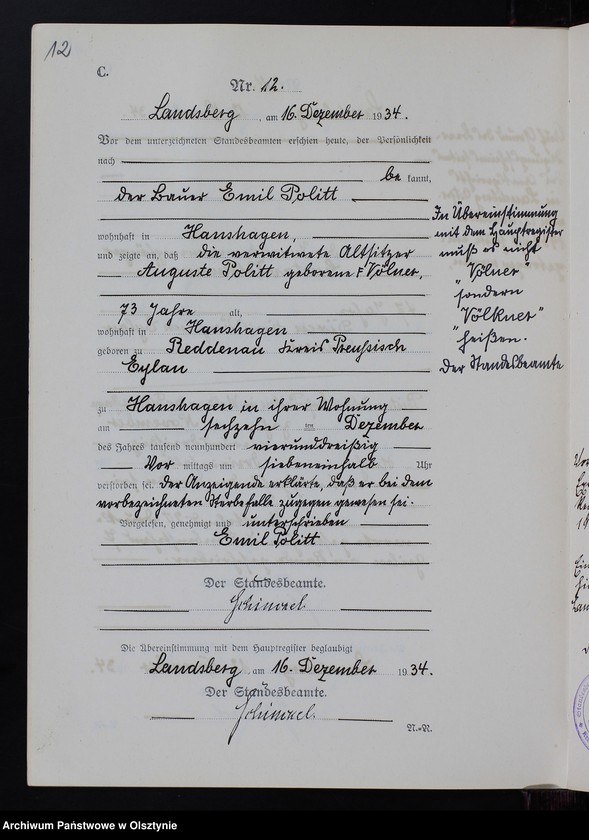 12
C.
Nr. 12.
Landsberg, am 16. Dezember 1934.
Vor dem unterzeichneten Standesbeamten erschien heute, der Persönlichkeit
nach
be kannt,
der Bauer Emil Politt
wohnhaft in Hanshagen,
und zeigte an, daß die verwitwete Altsitzer
Auguste Politt geborene Völner,
73 Jahre alt,
wohnhaft in Hanshagen
geboren zu Reddenau Kreis Preußisch
Eylau
zu Hanshagen in ihrer Wohnung
am sechzehn ten Dezember
des Jahres tausend neunhundert vierunddreißig
Vor mittags um siebeneinhalb Uhr
verstorben sei. Der Anzeigende erklärte, daß er bei dem
vorbezeichneten Sterbefalle zugegen gewesen sei.
Vorgelesen, genehmigt und unterschrieben
Emil Politt
Der Standesbeamte.
Die Übereinstimmung mit dem Hauptregister beglaubigt
Landsberg, am 16. Dezember 1934.
Der Standesbeamte.
N.-R.
In Übereinstimmung
mit dem Hauptregister
muß es nicht
"Völner"
sondern
"Völkner"
heißen.
Der Standesbeamte
Archiwum Państwowe w Olsztynie